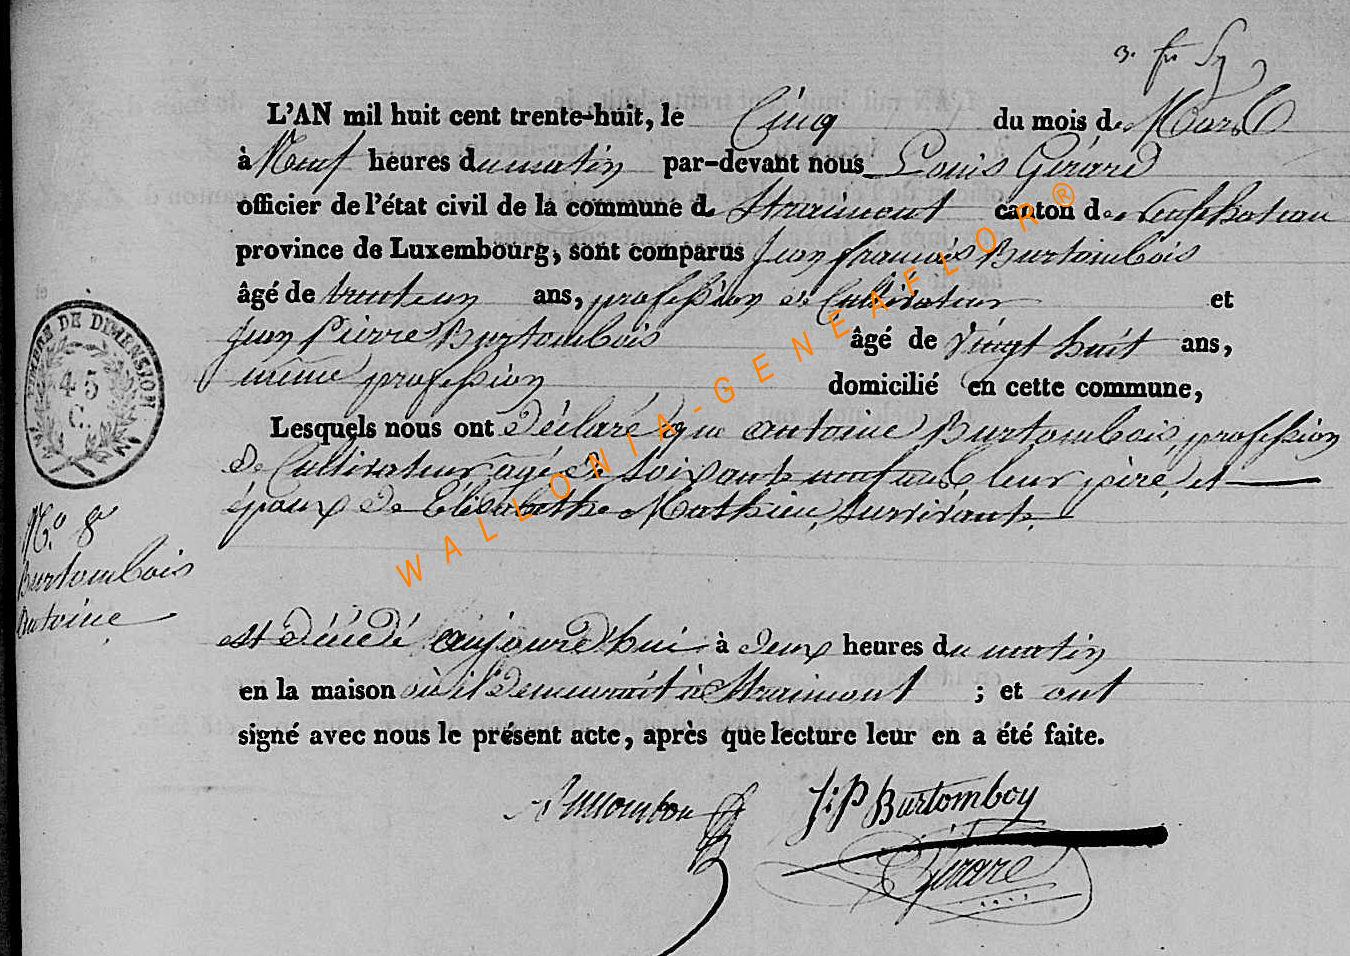 3. fr Sy
L'AN mil huit cent trente-huit, le Cinq du mois de Mars
à Neuf heures du matin par-devant nous Louis Gérard
officier de l'état civil de la commune de Straimont canton de neufchateau
province de Luxembourg, sont comparus Jean françois Burtombois
âgé de trente un ans, profession de Cultivateur et
Jean Pierre Burtombois âgé de vingt huit ans,
même profession domicilié en cette commune,
Lesquels nous ont déclaré que antoine Burtombois, profession
de Cultivateur agé de soixante neuf ans leur père, et
époux de Elisabethe Mathieu, survivante
est décédé aujourd'hui à deux heures du matin
en la maison où il demeurait à Straimont ; et ont
signé avec nous le présent acte, après que lecture leur en a été faite.
TIMBRE DE DIMENSION
45
C.
N.° 8
Burtombois
Antoine
J:P Burtomboy
Girard
WALLONIA-GENEAFLOR®